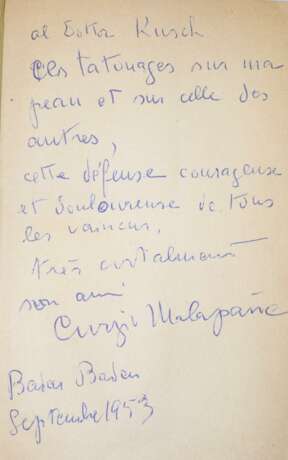 al Dottor Kusch
Ces tatouages sur ma
peau et sur celle des
autres,
cette défense courageuse
et douloureuse de tous
les vaincus,
très cordialement
son ami
Curzio Malaparte
Baden Baden
Septembre 1953